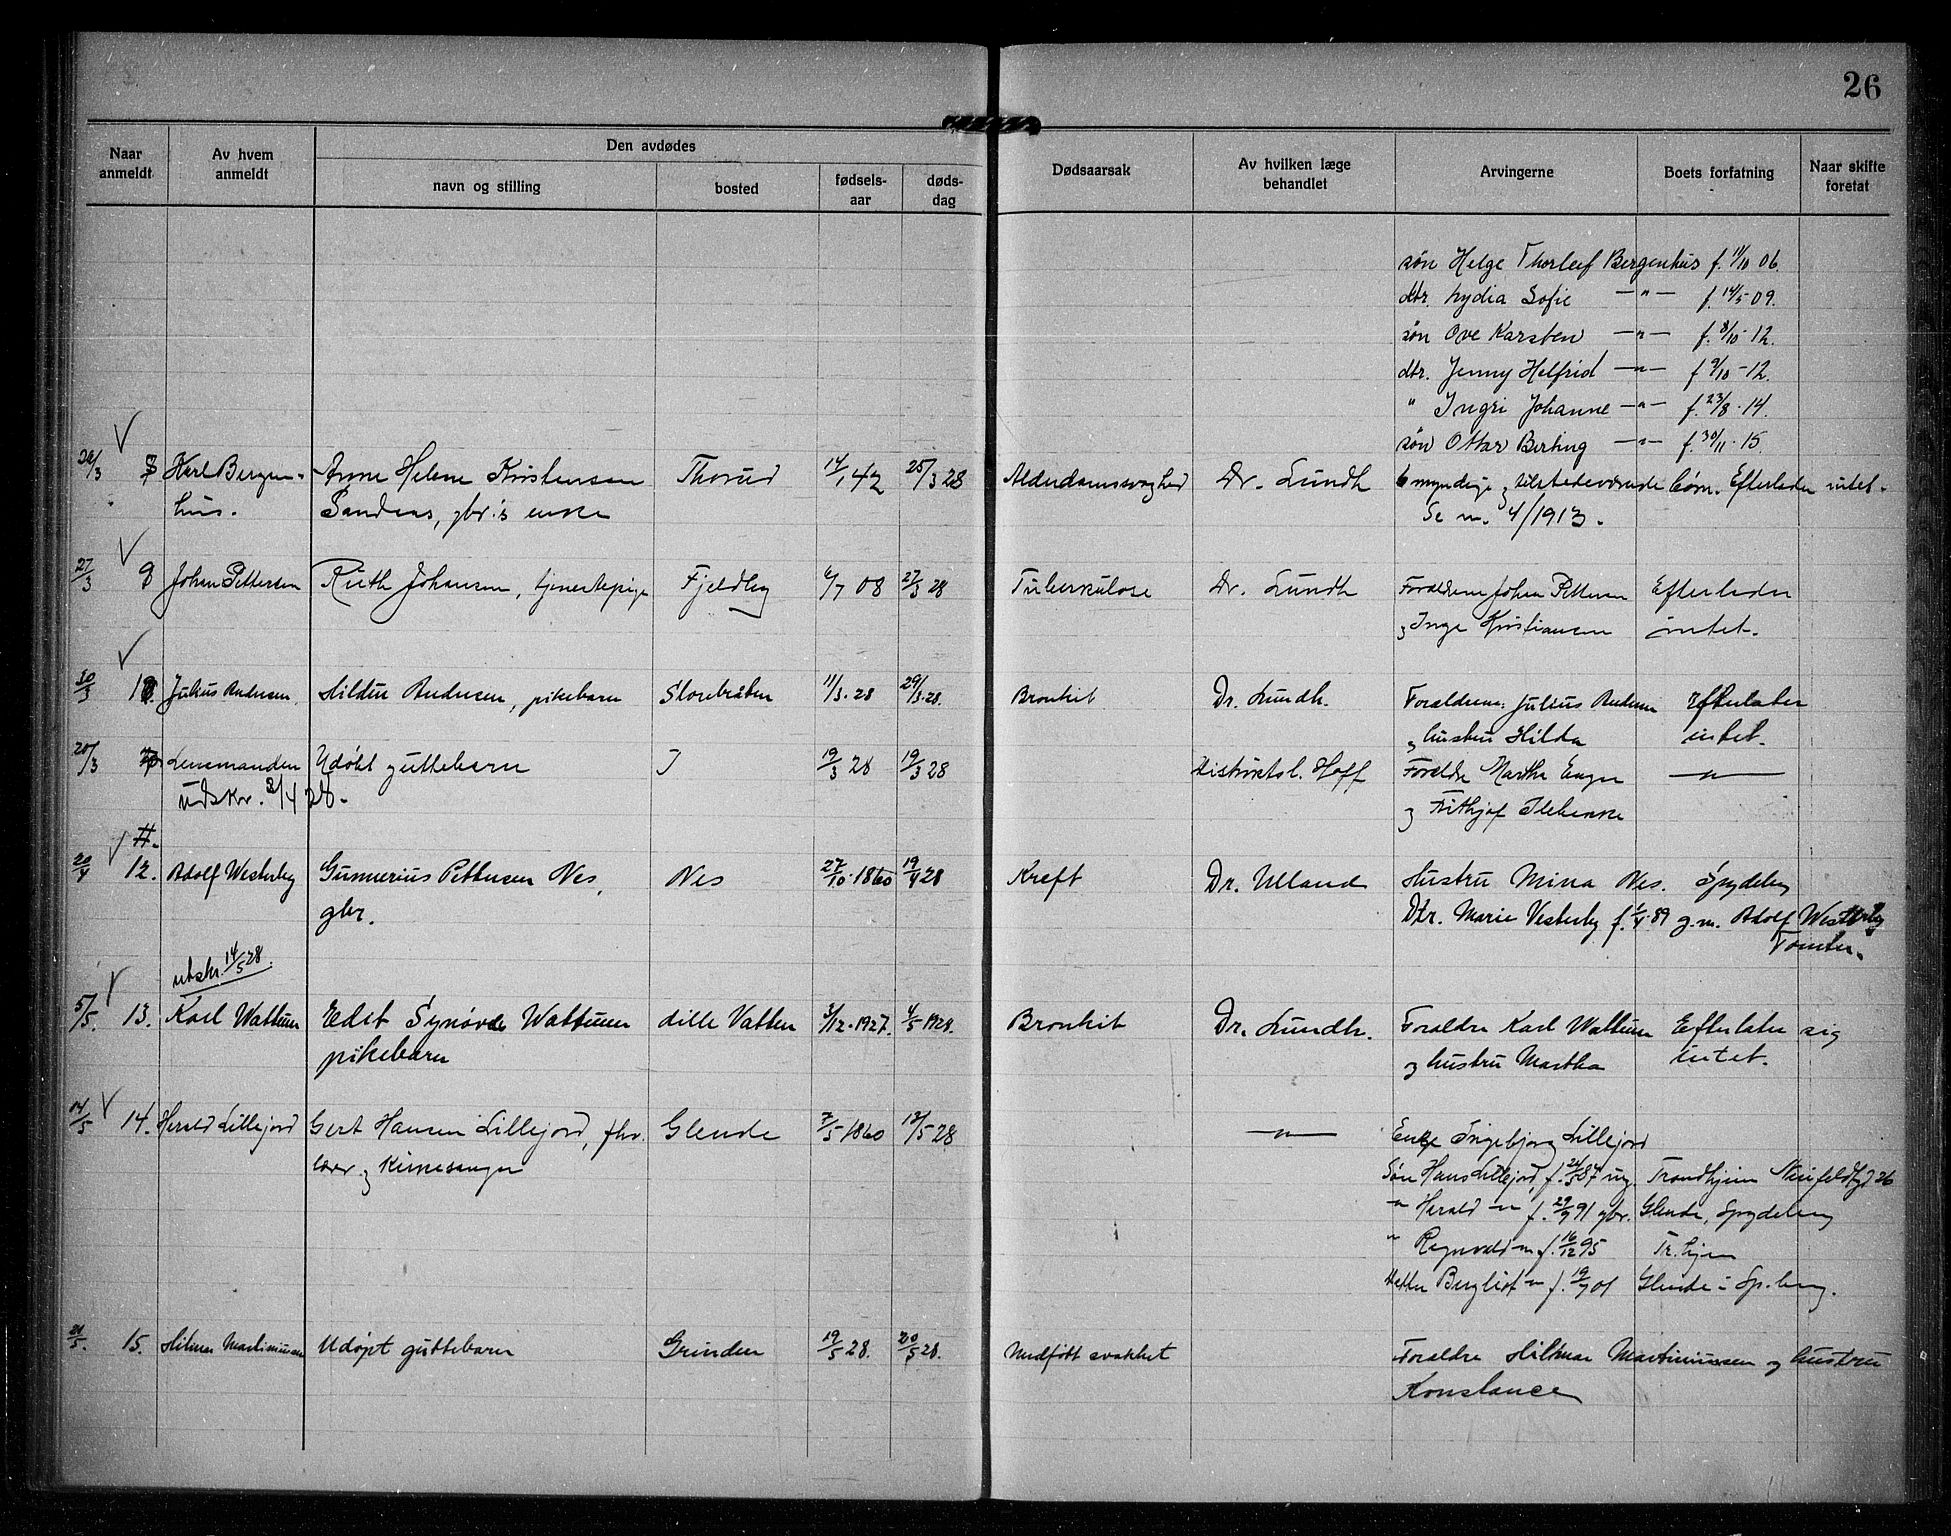 26
Naar anmeldt
Av hvem anmeldt
Den avdødes
navn og stilling
bosted
fødsels-aar
døds-dag
Dødsaarsak
Av hvilken læge behandlet
Arvingerne
Boets forfatning
Naar skifte foretat
søn Helge Thorleif Bergenhus f. 11/10 06.
dtr. Lydia Sofie —"— f. 14/5-09.
søn Ove Karsten —"— f. 8/10-12.
dtr. Jenny Helfrid —"— f 9/10-12.
" Ingri Johanne —"— f. 23/8-14.
søn Ottar Berting —"— f. 30/11-15.
Karl Bergen- Anne Helene Kristensen Thorud 14/1 42 25/3 28 Alderdomssvaghed Dr. Lundh 6 myndige og tilstedeværende børn. Efterlader intet.
hus. Sandaas, gbr.'s enke Se nr. 4/1913.
27/3 Johan Pettersen Ruth Johansen, tjenestepige Fjeldby 6/7 08 27/3 28 Tuberkulose Dr. Lundh Foreldrene Johan Pettersen Efterlader
og Inge Kristiansen intet.
30/3 Julius Andersen. Hildur Andersen, pikebarn Storebråten 11/3-28 29/3-28. Bronkit Dr. Lundh. Foreldrene: Julius Andersen Efterlater
og hustru Hilda intet.
20/3 Lensmanden Udøbt guttebarn 19/3 28 19/3 28 Distriktsl. Hoff Foreldre Martha Enger —"—
udskr. 2/4 28. og Frithjof
11.
20/4 12. Adolf Westerby Gunnerius Pettersen Nes, Nes 27/10-1860 19/4 28 Kreft Dr. Ulland Hustru Mina Nes. Spydeberg
gbr. Dtr. Marie Vesterby f. 1/4-89 g.m. Adolf Westerby
Tomter.
utskr. 14/5 28.
5/5. 13. Karl Wattum Edit Synøve Wattum Lille Vatten 3/12-1927. 4/5 1928. Bronkit Dr. Lundh. Foreldre Karl Wattum Efterlater sig
pikebarn og hustru Martha intet.
14/5 14. Harald Lillejord Gert Hansen Lillejord, fhv. Glende 7/5 1860 13/5 28 —"— Enke Ingebjorg Lillejord
lærer og kirkesanger Søn Hans Lillejord, f. 24/5 87 ing. Trondhjem 26
" Harald —"— f. 29/9 91 gbr. Glende, Spydeberg
" Ragnvald —"— f. 16/12 95 Tr.hjem
Datter Bergliot —"— f. 19/7 01 Glende i Sp.berg.
21/5. 15. Hilmar Martiniussen Udøpt guttebarn Grinden 19/5 28. 20/5 28. Medfött svakhet Foreldre Hilmar Martiniussen og hustru
Konstance